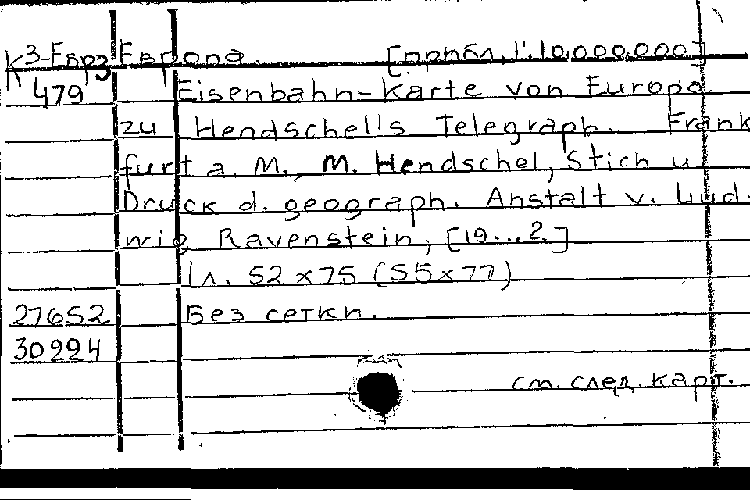 К3-Евр3 Европа. [прибл. 1:10.000.000]
479 Eisenbahn-Karte von Europa
zu Hendschel's Telegraph. Frank
furt a. M., M. Hendschel, Stich u
Druck d. geograph. Anstalt v. Lud.
wig Ravenstein, [19...2.]
1л. 52 x 75 (55x77)
27652 Без сетки.
30994
см. след. карт.